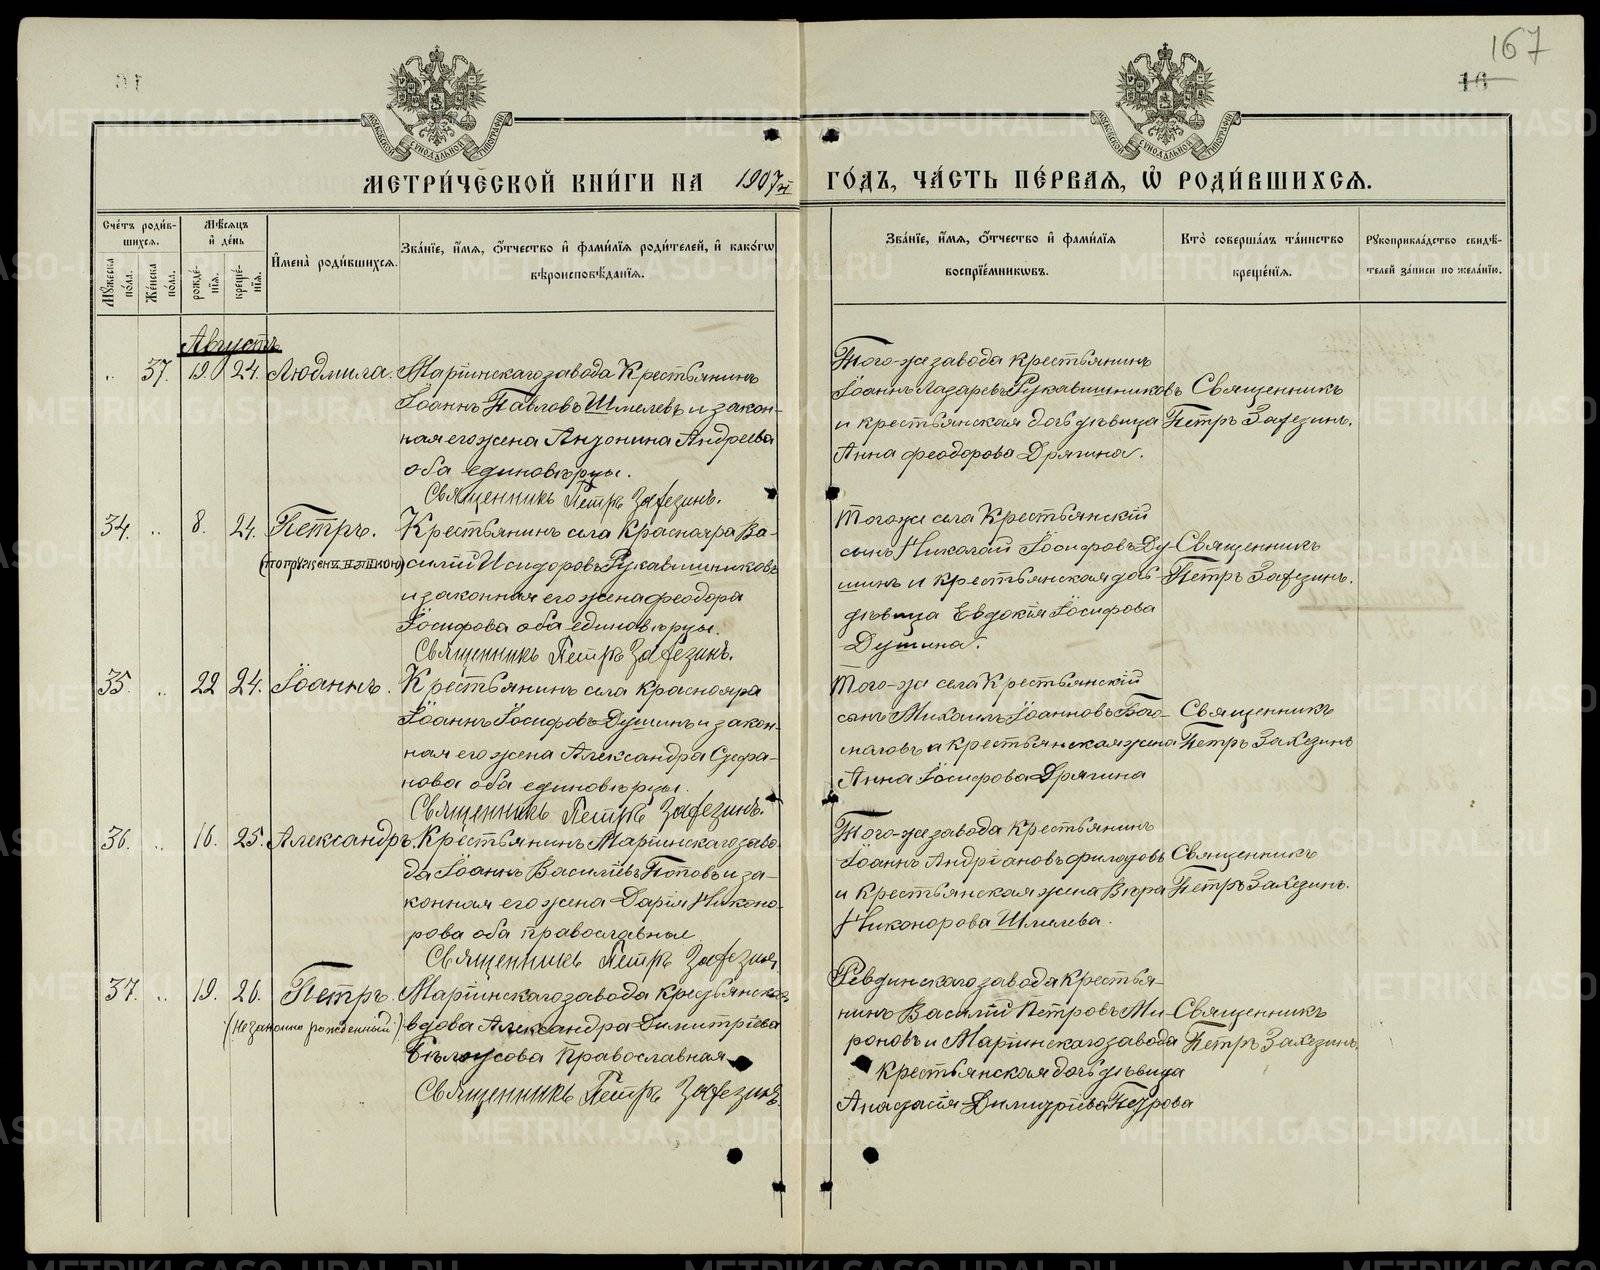 167
16
МОСКОВСКОЙ СѴНОДАЛЬНОЙ ТИПОГРАФІИ
МОСКОВСКОЙ СѴНОДАЛЬНОЙ ТИПОГРАФІИ
МЕТРИ́ЧЕСКОЙ КНИ́ГИ НА 1907й ГО́ДЪ, ЧА́СТЬ ПЕ́РВАЯ, Ѽ РОДИ́ВШИХСЯ.
Сче́тъ роди́в-
шихся.
Мꙋжеска по́ла.
Же́нска по́ла.
Мѣ́сяцъ и҆ де́нь
рожде́-
нїѧ.
креще́-
нїѧ.
И҆мена̀ роди́вшихся.
Зва́нїе, и҆́мя, ѻ҆́тчество и҆ фами́лїя роди́телей, и҆ како́гѡ
вѣроисповѣ́данїя.
Зва́нїе, и҆́мя, ѻ҆́тчество и҆ фами́лїя
воспрїе́мникѡвъ.
Кто̀ соверша́лъ та́инство
креще́нїя.
Рꙋкоприкла́дство свидѣ́-
телей за́писи по жела́нїю.
Августъ
„ 37. 19. 24. Людмила.
Маріинскаго завода Крестьянинъ
Іоаннъ Павловъ Шмелевъ и закон-
ная его жена Антонина Андреева
оба единовѣрцы.
Священникъ Петръ Захезинъ.
Того-же завода крестьянинъ
Іоаннъ Лазаревъ Рукавишниковъ
и крестьянская дочь дѣвица
Анна Феодорова Дрягина.
Священникъ
Петръ Захезинъ.
34. „ 8. 24. Петръ.
Крестьянинъ села Краснояра Ва-
силій Исидоровъ Рукавишниковъ
и законная его жена Феодора
Іосифова оба единовѣрцы.
Священникъ Петръ Захезинъ.
Того же села Крестьянскій
сынъ Николай Іосифовъ Ду-
шинъ и крестьянская дочь
дѣвица Евдокія Іосифова
Душина.
Священникъ
Петръ Захезинъ.
35. „ 22 24. Іоаннъ.
Крестьянинъ села Краснояра
Іоаннъ Іосифовъ Душинъ и закон-
ная его жена Александра Стефа-
нова оба единовѣрцы.
Священникъ Петръ Захезинъ.
Того-же села Крестьянскій
сынъ Михаилъ Іоанновъ Бого-
маговъ и крестьянская жена
Анна Іосифова Дрягина
Священникъ
Петръ Захезинъ
36. „ 16. 25. Александръ.
Крестьянинъ Маріинскаго заво-
да Іоаннъ Василіевъ Потовъ и за-
конная его жена Дарія Никоно-
рова оба православные
Священникъ Петръ Захезинъ
Того-же завода крестьянинъ
Іоаннъ Андріановъ Филатовъ
и крестьянская жена Вѣра
Никонорова Шмелева.
Священникъ
Петръ Захезинъ.
37. „ 19. 26. Петръ.
(Незаконно рожденный)
Маріинскаго завода крестьянская
вдова Александра Димитріева
Бѣлоусова Православная
Священникъ Петръ Захезинъ
Ревдинскаго завода крестья-
нинъ Василій Петровъ Ми-
роновъ и Маріинскаго завода
крестьянская дочь дѣвица
Анастасія Димитріева Петрова
Священникъ
Петръ Захезинъ.
METRIKI.GASO-URAL.RU